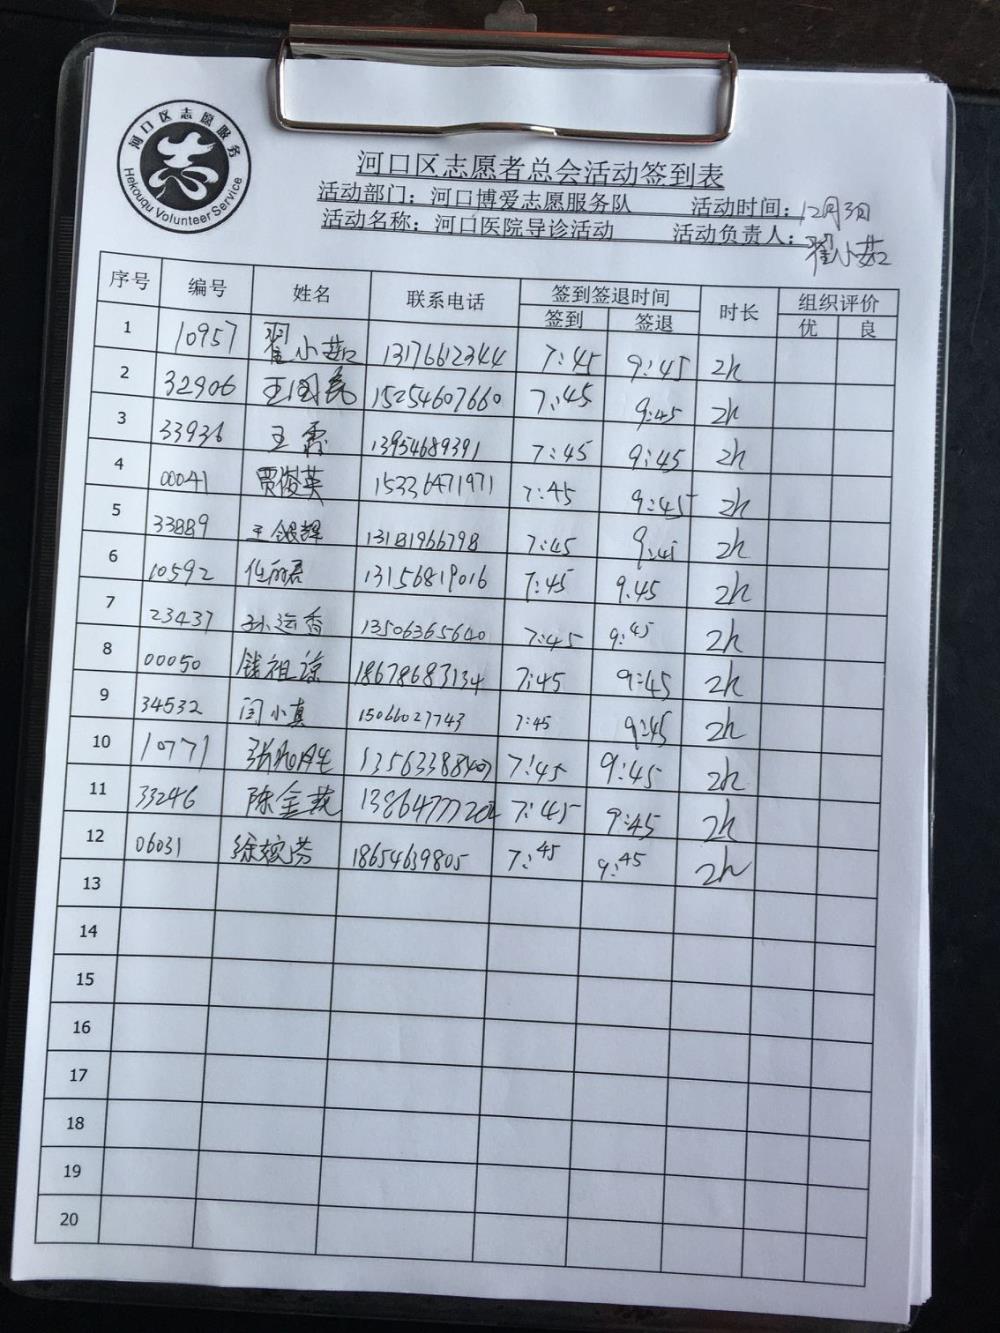 河口区志愿服务
Hekouqu Volunteer Service
河口区志愿者总会活动签到表
活动部门：河口博爱志愿服务队 活动时间：12月3日
活动名称：河口医院导诊活动 活动负责人：翟小茹
序号 编号 姓名 联系电话 签到签退时间 时长 组织评价
签到 签退 优 良
1 10957 翟小茹 13176612344 7:45 9:45 2h
2 32906 王国亮 15254607660 7:45 9:45 2h
3 33936 王霞 13954689391 7:45 9:45 2h
4 00041 贾俊英 15336471971 7:45 9:45 2h
5 33889 王银辉 13181966798 7:45 9:45 2h
6 10592 任丽君 13156819016 7:45 9.45 2h
7 23437 孙运香 13506365640 7:45 9:45 2h
8 00050 钱祖谅 18678683134 7:45 9:45 2h
9 34532 闫小真 15066027743 7:45 9:45 2h
10 10771 张 13563388407 7:45 9:45 2h
11 33246 陈金花 13864777204 7:45 9:45 2h
12 06031 徐 18654639805 7:45 9:45 2h
13
14
15
16
17
18
19
20